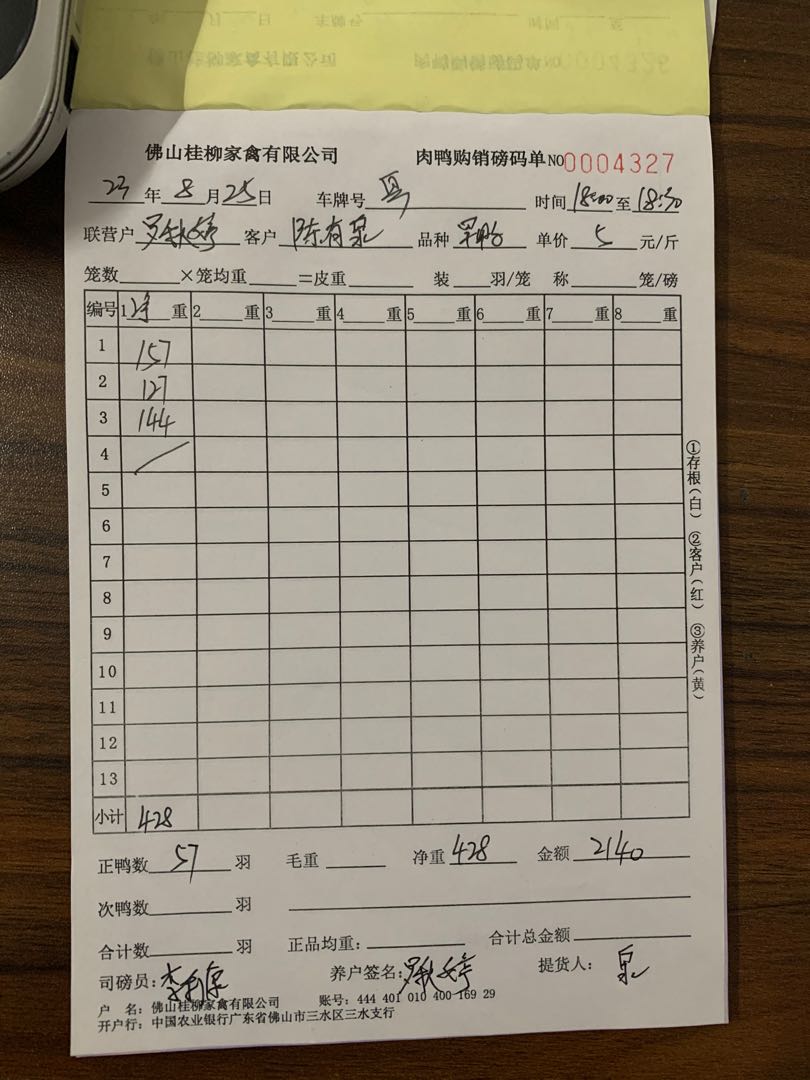 佛山桂柳家禽有限公司 肉鸭购销磅码单NO0004327
23年8月25日 车牌号 时间18:00至18:30
联营户罗秋婷 客户陈有泉 品种 单价5元/斤
笼数 ×笼均重 =皮重 装 羽/笼 称 笼/磅
编号 1净重 2 重 3 重 4 重 5 重 6 重 7 重 8 重
1 157
2 127
3 144
4
5
6
7
8
9
10
11
12
13
小计 428
正鸭数57羽 毛重 净重428 金额2140
次鸭数 羽
合计数 羽 正品均重: 合计总金额
司磅员: 养户签名:罗秋婷 提货人:泉
户 名:佛山桂柳家禽有限公司 账号:444 401 010 400 169 29
开户行:中国农业银行广东省佛山市三水区三水支行
①存根(白) ②客户(红) ③养户(黄)